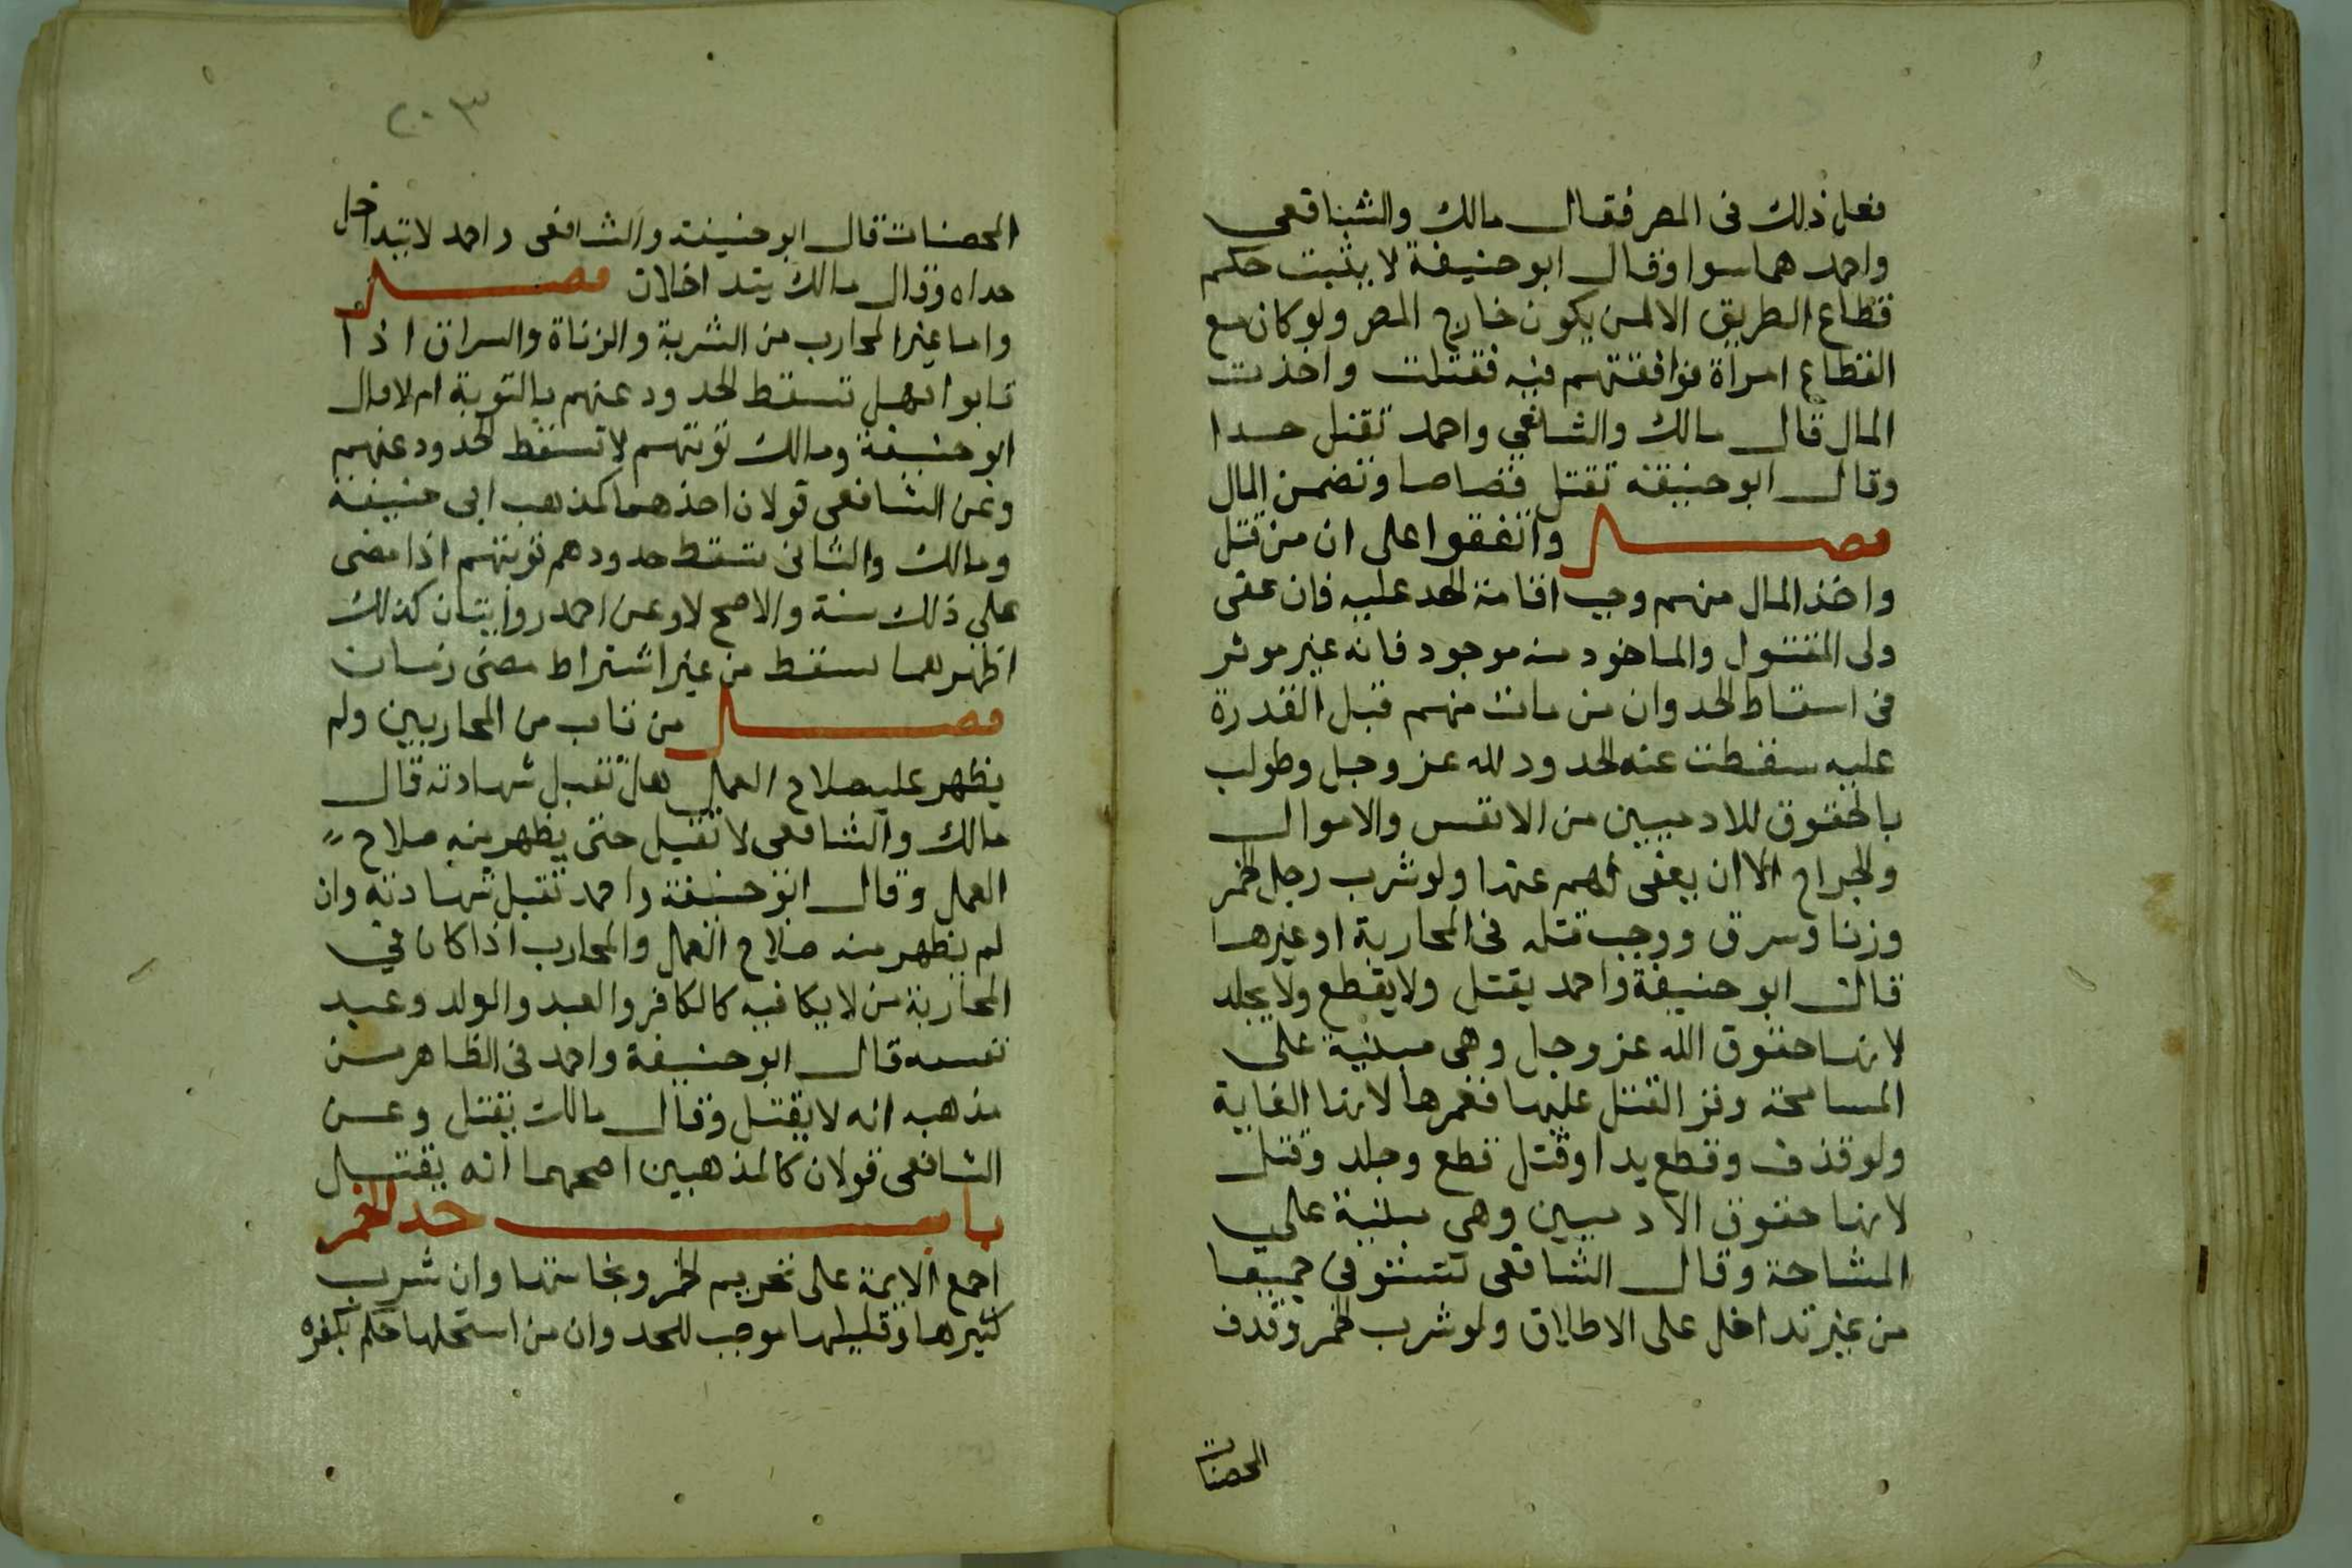 فعل ذلك فى المصر فقال مالك والشافعى
واحمد هما سوا وقال ابو حنيفة لا يثبت حكم
قطاع الطريق الا لمن يكون خارج المصر ولو كان مع
القطاع امراة فوافقتهم فيه فقتلت واخذت
المال قال مالك والشافعي واحمد تقتل حدا
وقال ابو حنيفة تقتل قصاصا وتضمن المال
فصل واتفقوا على ان من قتل
واخذ المال منهم وجب اقامة الحد عليه فان عفى
ولى المقتول والماخود منه موجود فانه غير موثر
فى اسقاط الحد وان من مات منهم قبل القدرة
عليه سقطت عنه الحدود لله عز وجل وطولب
بالحقوق للادميين من الانفس والاموال
والجراح الا ان يعفى لهم عنها ولو شرب رجل الخمر
وزنا وسرق ووجب قتله فى المحاربة او غيرها
قال ابو حنيفة واحمد يقتل ولا يقطع ولا يجلد
لانها حقوق الله عز وجل وهى مبنية على
المسامحة القتل عليها فغمرها لانها الغاية
ولو قذف وقطع يدا وقتل قطع وجلد وقتل
لانها حقوق الادميين وهى مبنية علي
المشاحة وقال الشافعى تستوفى جميعا
من غير تداخل على الاطلاق ولو شرب الخمر وقدف
المحصنات
٢٠٣
المحصنات قال ابو حنيفة والشافعى واحمد لا تبداخل
حداه وقال مالك يتداخلان فصل
واما غير المحارب من الشربة والزناة والسراق اذا
تابوا هل تسقط الحدود عنهم بالتوبة ام لا قال
ابو حنيفة ومالك توبتهم لا تسقط الحدود عنهم
وعن الشافعى قولان احدهما كمذهب ابى حنيفة
ومالك والثانى تسقط حدودهم توبتهم اذا مضى
علي ذلك سنة والاصح لا وعن احمد روايتان كذلك
اظهرهما تسقط من غير اشتراط مضى زمان
فصل من تاب من المحاربين ولم
يظهر عليه صلاح العمل هل تقبل شهادته قال
مالك والشافعى لا تقبل حتى يظهر منه صلاح
العمل وقال ابو حنيفة واحمد تقبل شهادته وان
لم يظهر منه صلاح العمل والمحارب اذا كان في
المحاربة من لا يكافيه كالكافر والعبد والولد وعبد
نفسه قال ابو حنيفة واحمد فى الظاهر من
مذهبه انه لا يقتل وقال مالك يقتل وعن
الشافعى قولان كالمذهبين اصحهما انه يقتل
باب حد الخمر
اجمع الايمة على تحريم الخمر ونجاستها وان شرب
كثيرها وقليلها موجب للحد وان من استحلها حكم بكفره